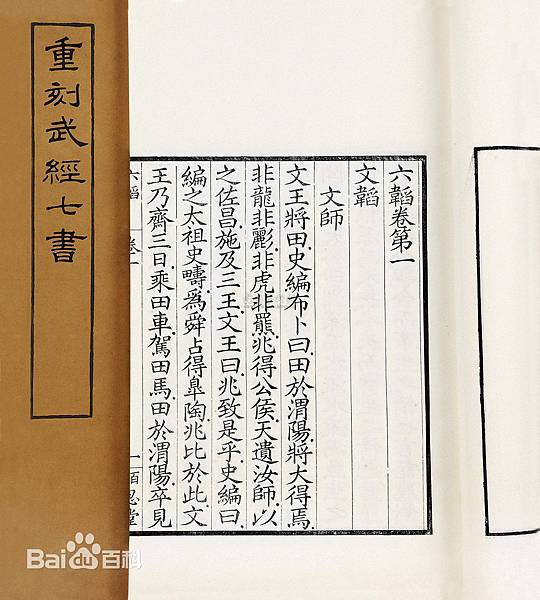 重刻武經七書
六韜卷第一
文韜
文師
文王將田史編布卜曰田於渭陽將大得焉
非龍非彲非虎非羆兆得公侯天遺汝師以
之佐昌施及三王文王曰兆致是乎史編曰
編之太祖史疇爲舜占得臯陶兆比於此文
王乃齋三日乘田車駕田馬田於渭陽卒見
六韜 卷一
一 百忍堂
Baidu百科